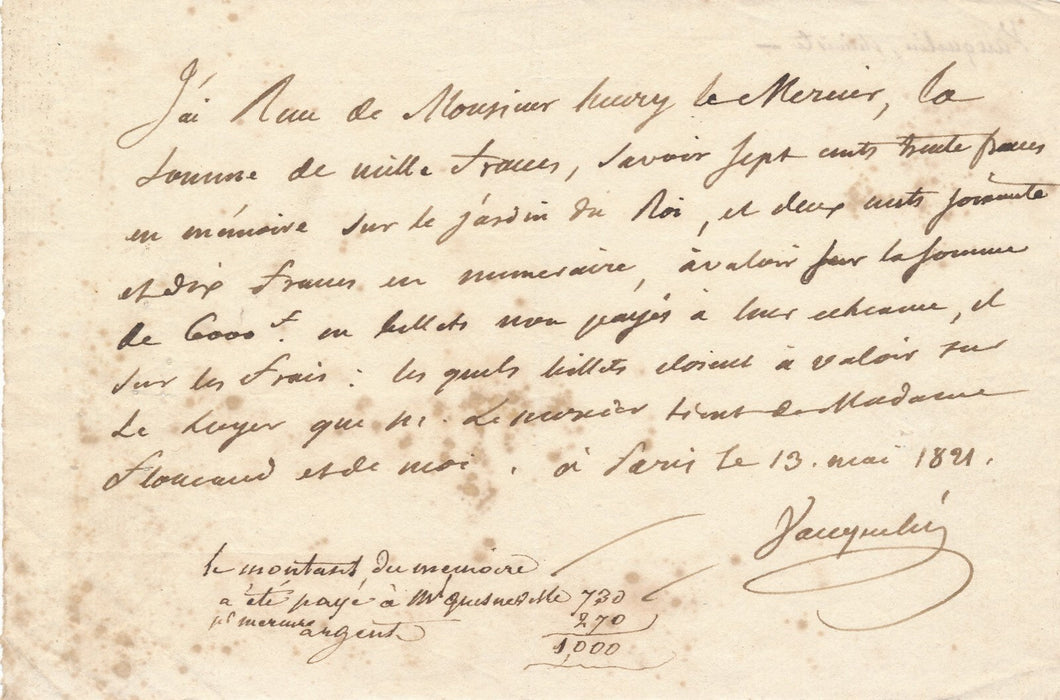 J'ai Recu de Monsieur henry le Mercier, la
Somme de mille francs, savoir sept cents trente francs
en mémoire sur le jardin du Roi, et deux cents soixante
et dix francs en numeraire, à valoir sur la somme
de 6000 f. en billets non payés à leur echeance, et
sur les frais: les quels billets etoient à valoir sur
le loyer que M. Lemercier tient de Madame
Floucaud et de moi. à Paris le 13. mai 1821.
Vauquelin
le montant du mémoire
a été payé à Mr quesnedelle 730
pr mercure 270
argent
1,000